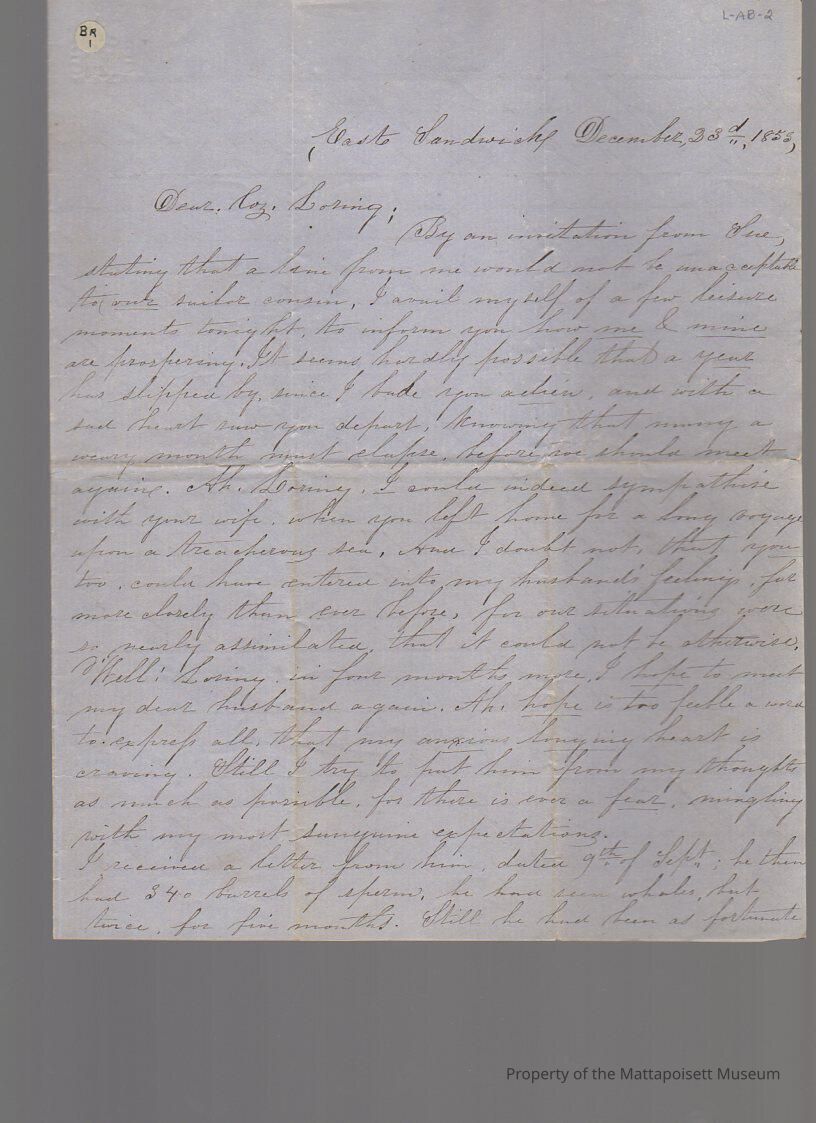 BR
1
L-AB-2
East Sandwich, December, 23d, 1853,
Dear. Coz. Loring;
By an invitation from Sue,
stating that a line from me would not be unacceptable
to our sailor cousin, I avail myself of a few leisure
moments tonight, to inform you how me & mine
are prospering. It seems, hardly possible that a year
has slipped by, since I bade you adieu, and with a
sad heart saw you depart, knowing that many a
weary month must elapse, before we should meet
again. Ah. Loring, I could indeed sympathise
with your wife, when you left home for a long voyage
upon a treacherous sea, And I doubt not, that you
too, could have entered into my husband's feelings, far
more closely than ever before, for our situations were
so nearly assimilated, that it could not be otherwise.
Well! Loring, in four months more, I hope to meet
my dear husband again. Ah. hope is too feeble a word
to express all, that my anxious longing heart is
craving. Still I try to put him from my thoughts
as much as possible, for there is ever a fear, mingling
with my most sanguine expectations.
I received a letter from him, dated 9th of Sept.; he then
had 340 barrels of sperm, he had seen whales, but
twice, for five months. Still he had been as fortunate
Property of the Mattapoisett Museum